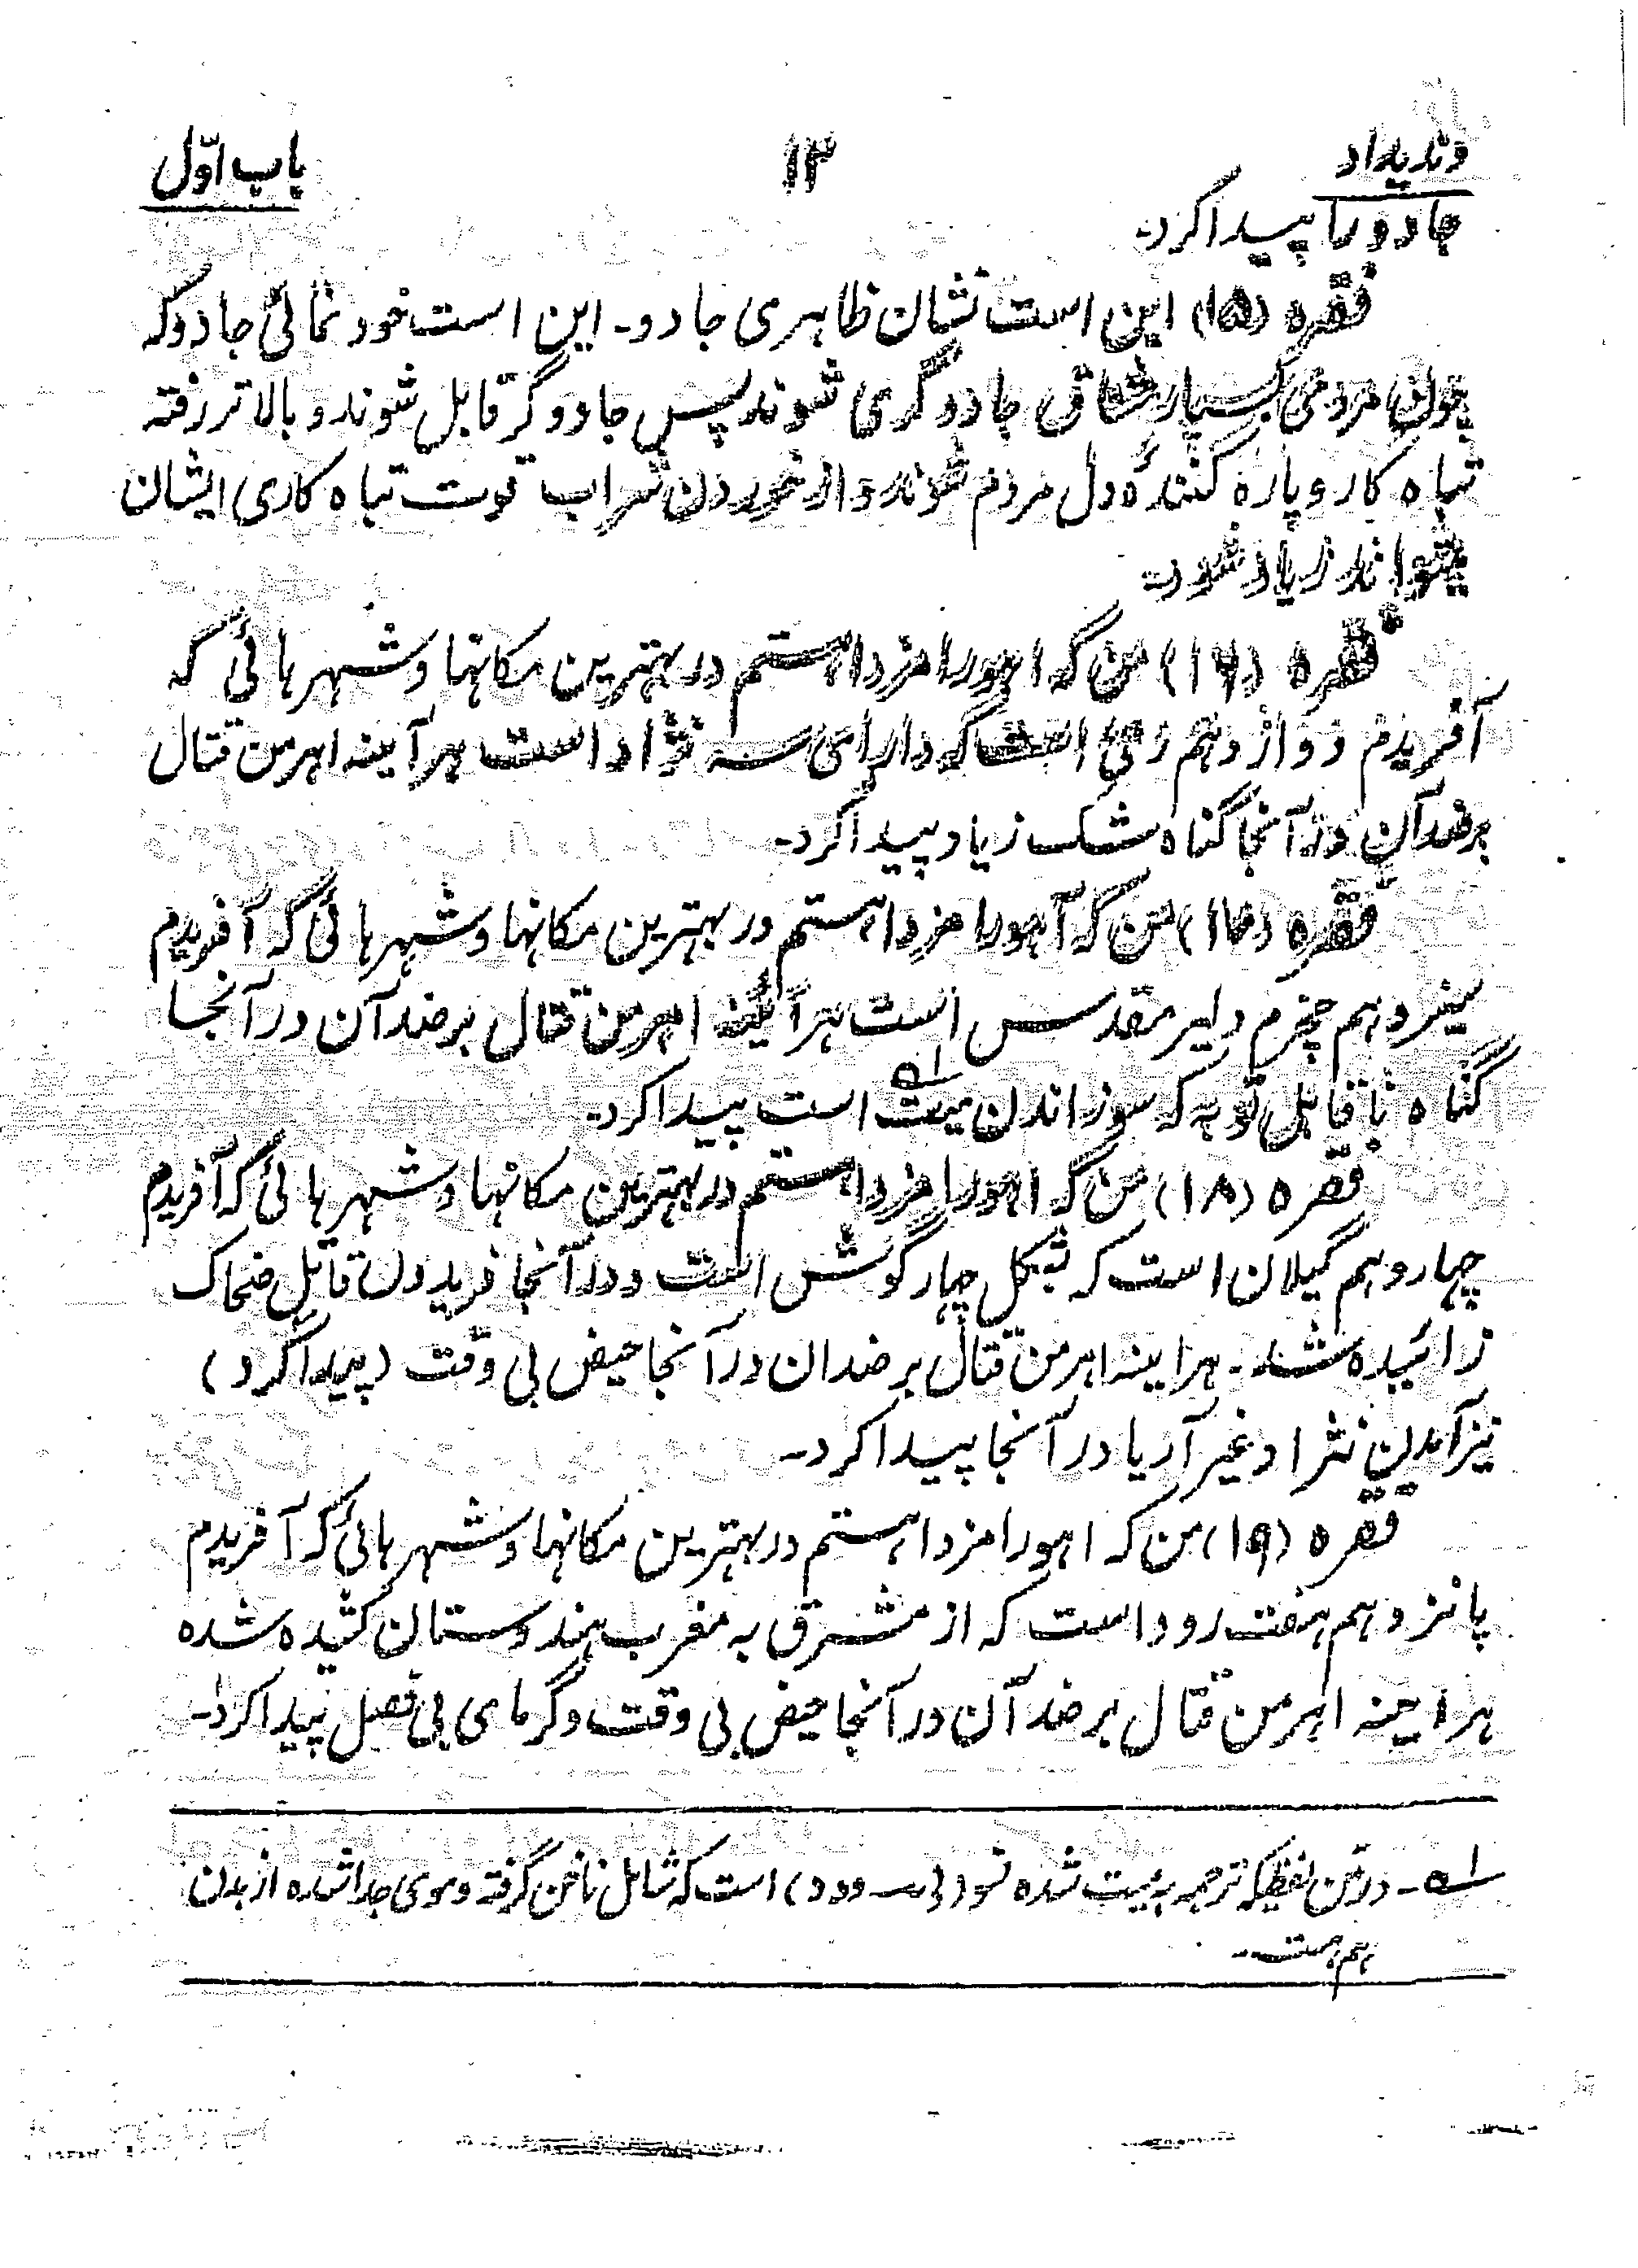 وندیداد ۱۳ باب اوّل
جادو را پیدا کرد-
فقره (۱۵) این است نشان ظاہری جادو- این است خود نمائی جادو که
چون مردمی بسیار مشاق جادوگری شوند پس جادوگر قابل شوند و بالاتر رفته
تباه کار و پاره کنندهٔ دل مردم شوند و از خوردن شراب قوت تباه کاری ایشان
میتواند زیاد شود-
فقره (۱۶) من که اهورامزدا هستم در بهترین مکانها و شهرهائی که
آفریدم دوازدهم ری است که دارای سه نژاد است هرآینه اهرمن قتال
برضد آن در آنجا گناه شک زیاد پیدا کرد-
فقره (۱۷) من که آهورامزدا هستم در بهترین مکانها و شهرهائی که آفریدم
سیزدهم چخرم دلیر مقدس است هرآئینه اهرمن قتال برضد آن در آنجا
گناه ناقابل توبه که سوزاندن میت ۱ه است پیدا کرد-
فقره (۱۸) من که اهورامزدا هستم در بهترین مکانها و شهرهائی که آفریدم
چهاردهم گیلان است که بشکل چهار گوش است و در آنجا فریدون قاتل ضحاک
زائیده شد- هراینه اهرمن قتال برضد ان در آنجا حیض بی وقت (پیدا کرد)
نیز آمدن نژاد غیر آریا در آنجا پیدا کرد-
فقره (۱۹) من که اهورامزدا هستم در بهترین مکانها و شهرهائی که آفریدم
پانزدهم هفت رود است که از مشرق به مغرب هندوستان کشیده شده
هراینه اهرمن قتال برضد آن در آنجا حیض بی وقت و گرمای بی فصل پیدا کرد-
۱ه- در متن لفظیکه ترجمه به میت شده نسو است که شامل ناخن گرفته و موی جدا شده از بدن
هم هست-